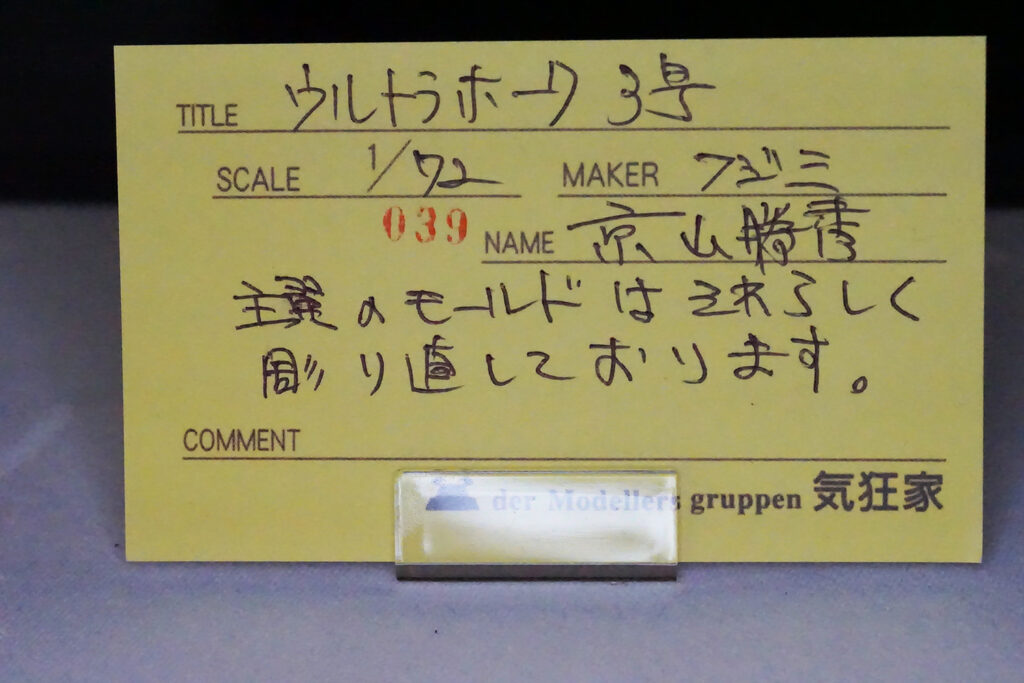 TITLE ウルトラホーク 3号
SCALE 1/72 MAKER フジミ
039 NAME 京山勝秀
主翼のモールドはそれらしく
彫り直しております。
COMMENT
der Modellers gruppen 気狂家